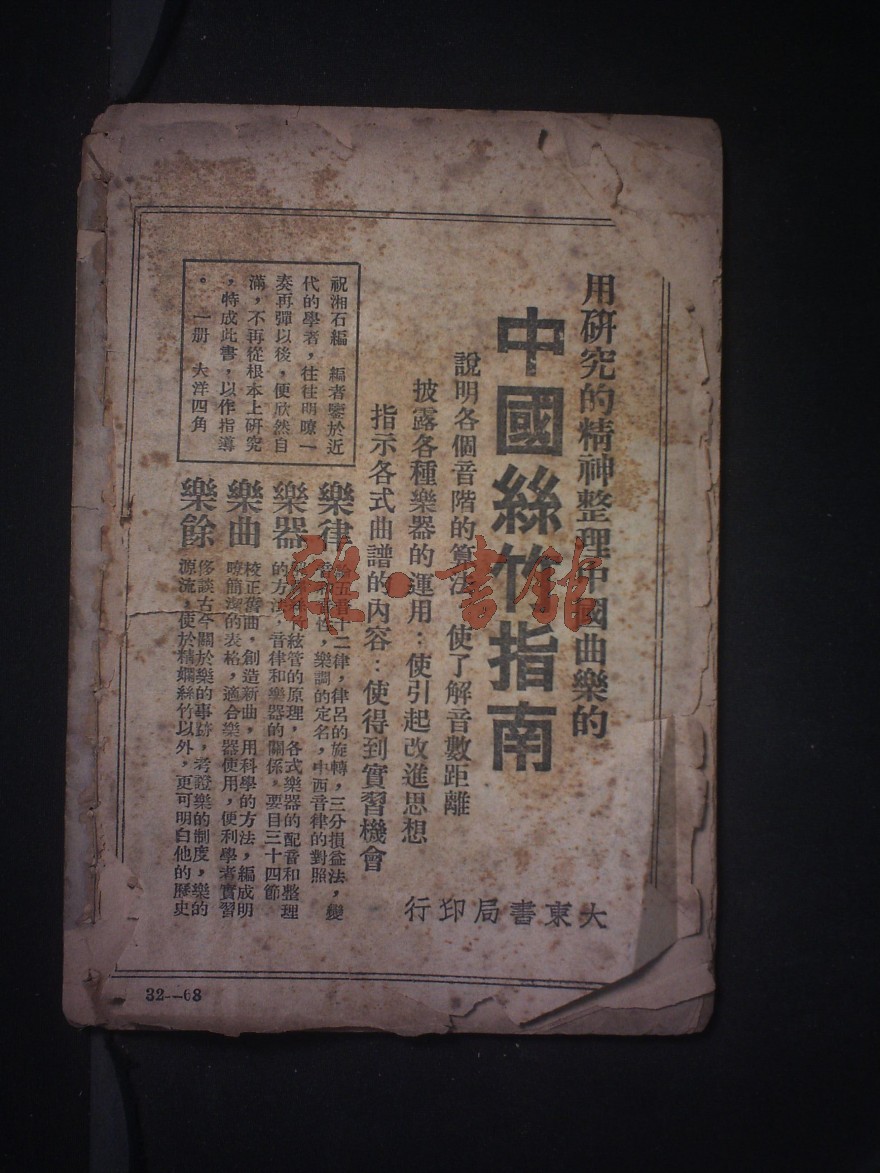 用研究的精神整理中國曲樂的
中國絲竹指南
說明各個音階的算法 使了解音數距離
披露各種樂器的運用：使引起改進思想
指示各式曲譜的內容：使得到實習機會
大東書局印行
祝湘石編　編者鑒於近
代的學者，往往明嘹一
奏再彈以後，便欣然自
滿，不再從根本上研究
，特成此書，以作指導
。　一册　大洋四角
樂律
五音十二律，律呂的旋轉，三分損益法，變
性，樂調的定名，中西音律的對照
樂器
絃管的原理，各式樂器的配音和整理
的方法，音律和樂器的關係，要目三十四節
樂曲
校正舊曲，創造新曲，用科學的方法，編成明
嘹簡潔的表格，適合樂器使用，便利學者實習
樂餘
侈談古今關於樂的事跡，考證樂的制度，樂的
源流，使於精嫻絲竹以外，更可明白他的歷史
32--68
雜·書館